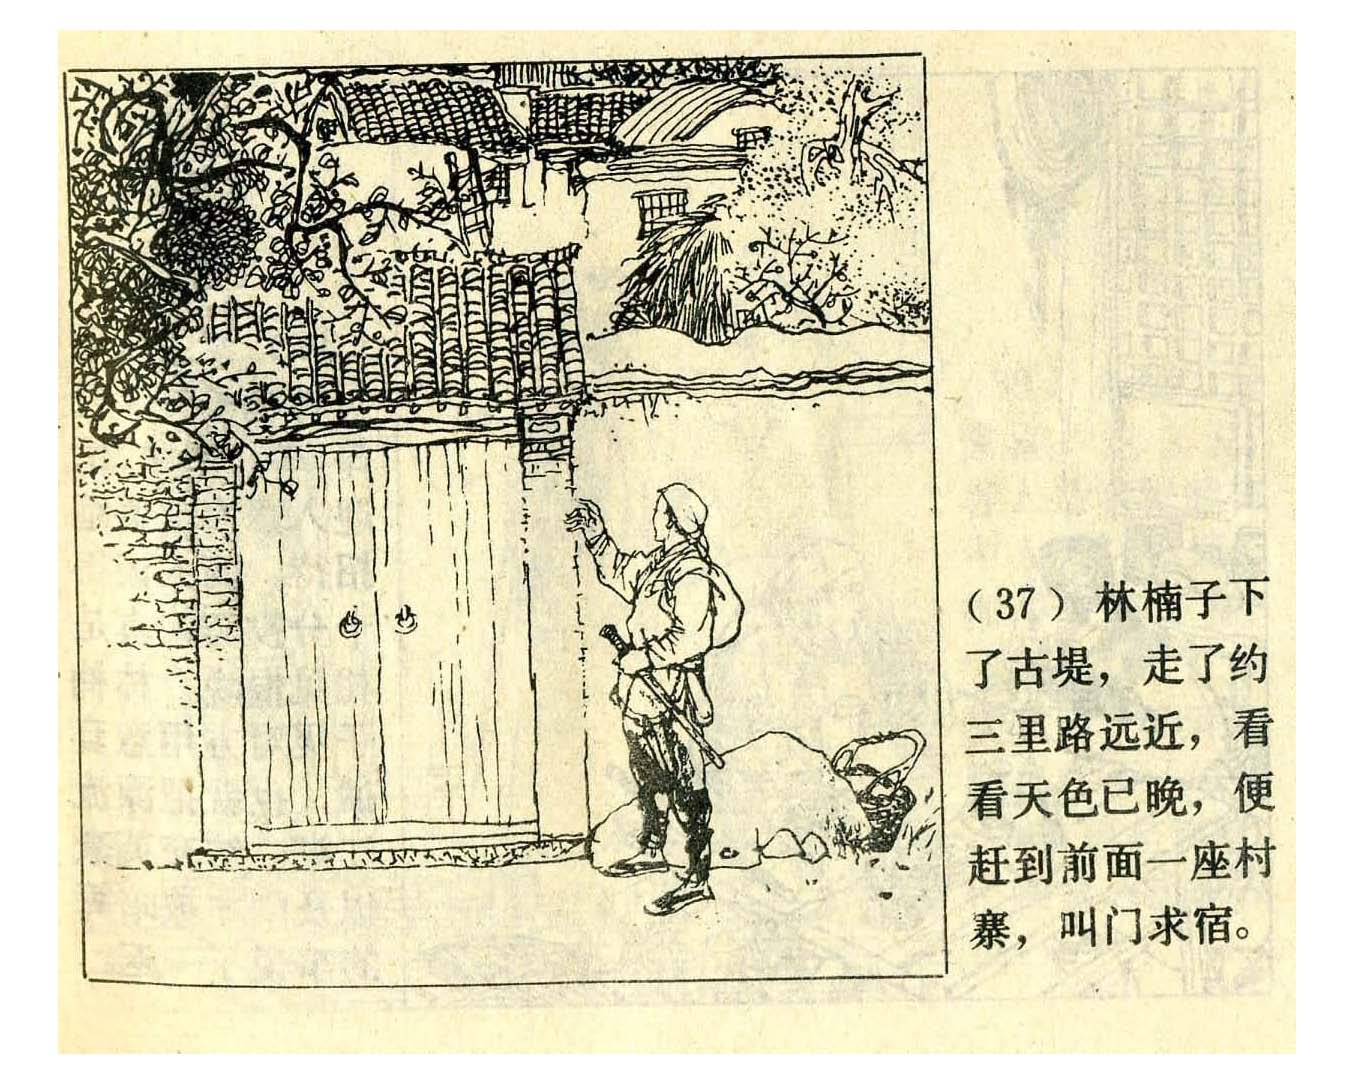 （37）林楠子下
了古堤，走了约
三里路远近，看
看天色已晚，便
赶到前面一座村
寨，叫门求宿。